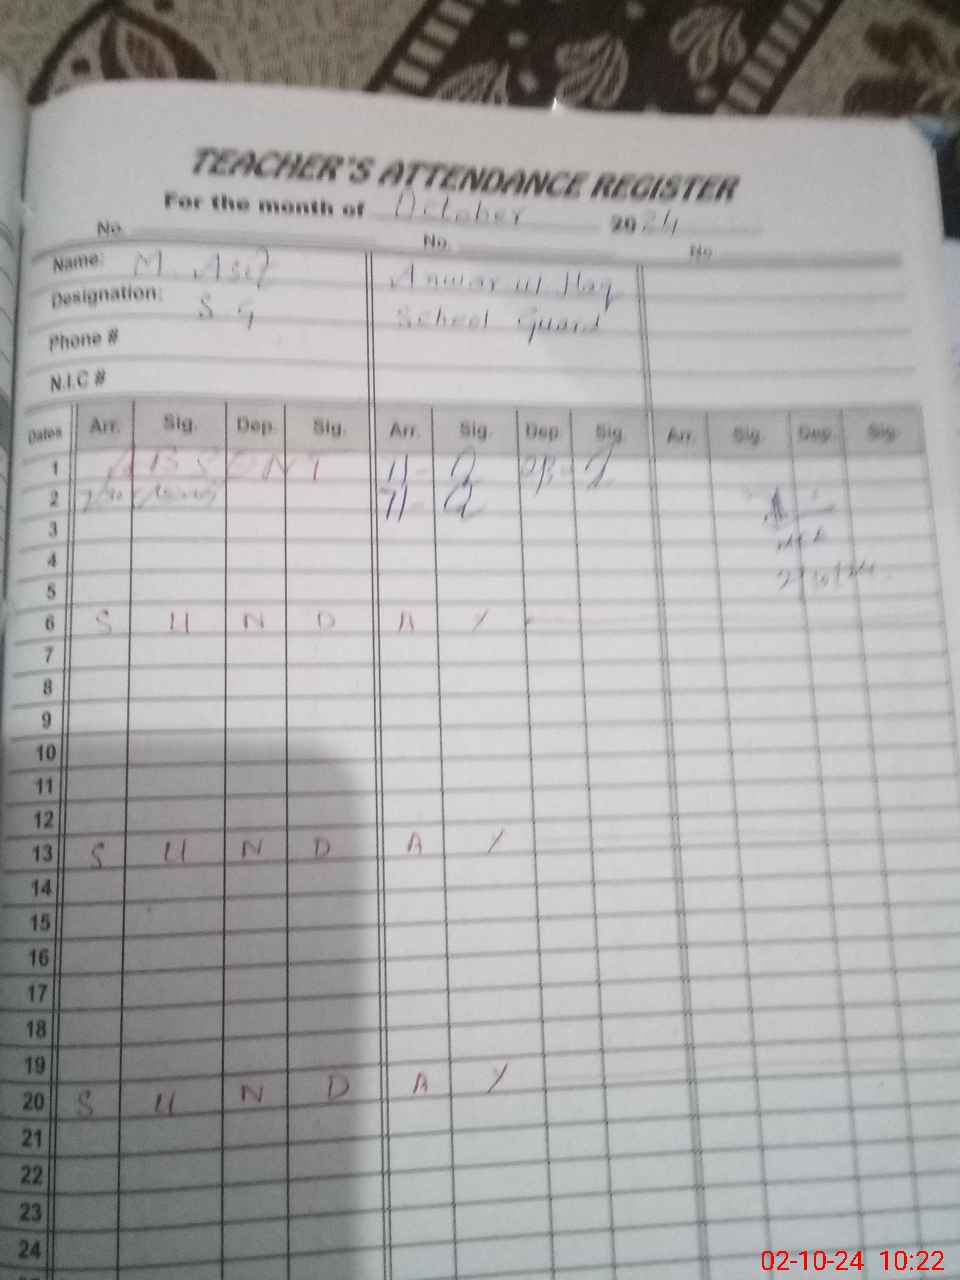 TEACHER'S ATTENDANCE REGISTER
For the month of October 2024
No. No. No.
Name: M. Asif Anwar ul Haq
Designation: S G School Guard
Phone #
N.I.C #
Dates Arr. Sig. Dep. Sig. Arr. Sig. Dep. Sig. Arr. Sig. Dep. Sig.
1 ABSENT
2
3
4
5
6 S U N D A Y
7
8
9
10
11
12
13 S U N D A Y
14
15
16
17
18
19
20 S U N D A Y
21
22
23
24
02-10-24 10:22